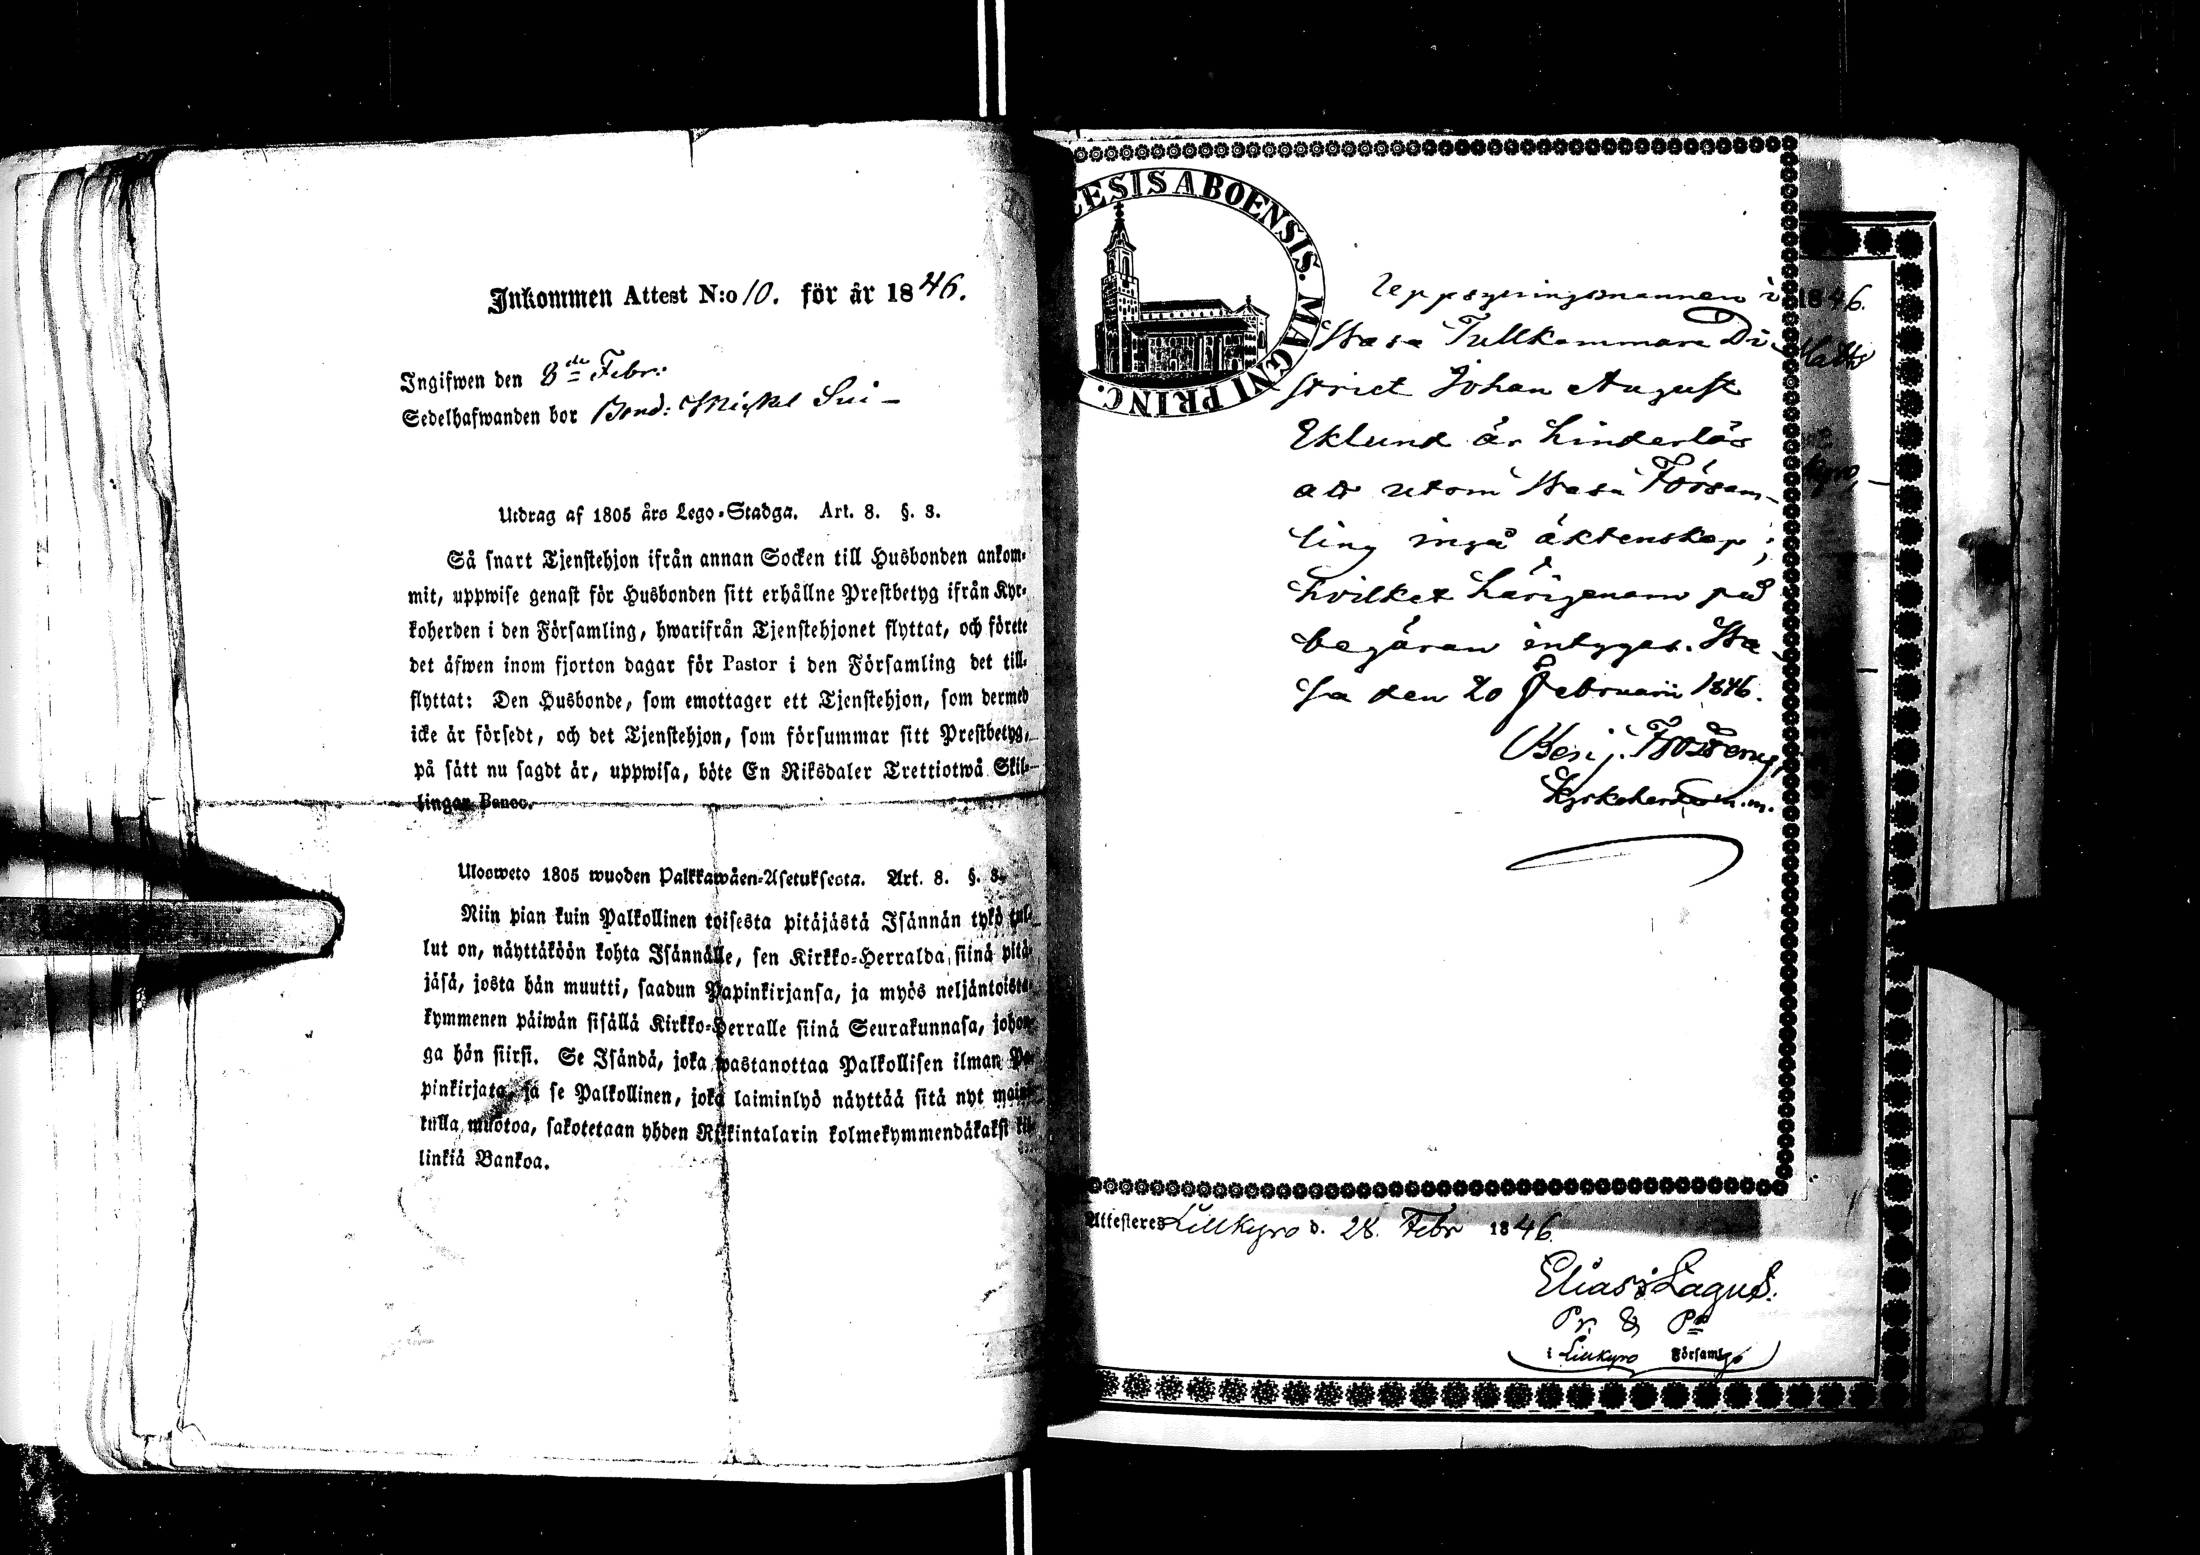 Inkommen Attest N:o 10. för år 1846.
Ingifwen den 8de Febr:
Sedelhafwanden bor Bond: Mickel Sui-
Utdrag af 1805 års Lego-Stadga. Art. 8. §. 3.
Så snart Tjenstehjon ifrån annan Socken till Husbonden ankom-
mit, uppwise genast för Husbonden sitt erhållne Prestbetyg ifrån Kyr-
koherden i den Församling, hwarifrån Tjenstehjonet flyttat, och förete
det äfwen inom fjorton dagar för Pastor i den Församling det till-
flyttat: Den Husbonde, som emottager ett Tjenstehjon, som dermed
icke är försedt, och det Tjenstehjon, som försummar sitt Prestbetyg,
på sätt nu sagdt är, uppwisa, böte En Riksdaler Trettiotwå Skil-
lingar Banco.
Ulosweto 1805 wuoden Palkkawäen-Asetuksesta. Art. 8. §. 3.
Niin pian kuin Palkollinen toisesta pitäjästä Isännän tykö tul-
lut on, näyttäköön kohta Isännälle, sen Kirkko-Herralda siinä pitä-
jäsä, josta hän muutti, saadun Papinkirjansa, ja myös neljäntoista-
kymmenen päiwän sisällä Kirkko-Herralle siinä Seurakunnasa, johon-
ga hän siirsi. Se Isändä, joka wastanottaa Palkollisen ilman Pa-
pinkirjata, ja se Palkollinen, joka laiminlyö näyttää sitä nyt mainit-
tulla muotoa, sakotetaan yhden Riikintalarin kolmekymmendäkaksi kil-
linkiä Bankoa.
ESIS ABOENSIS. MAGNI PRINC.
Uppsyningsmannen i
Wasa Tullkammare Di-
strict Johan August
Eklund är hinderlös
att utom Wasa Försam-
ling ingå äktenskap;
hvilket härigenom på
begäran intygas. Wa-
sa den 20 Februarii 1846.
Benj. Frosterus,
Kyrkoherde m.m.
1846.
Matts
Attesteres Lillkyro d. 28. Febr 1846.
Elias Lagus.
Pr. & Pr
i Lillkyro Församl